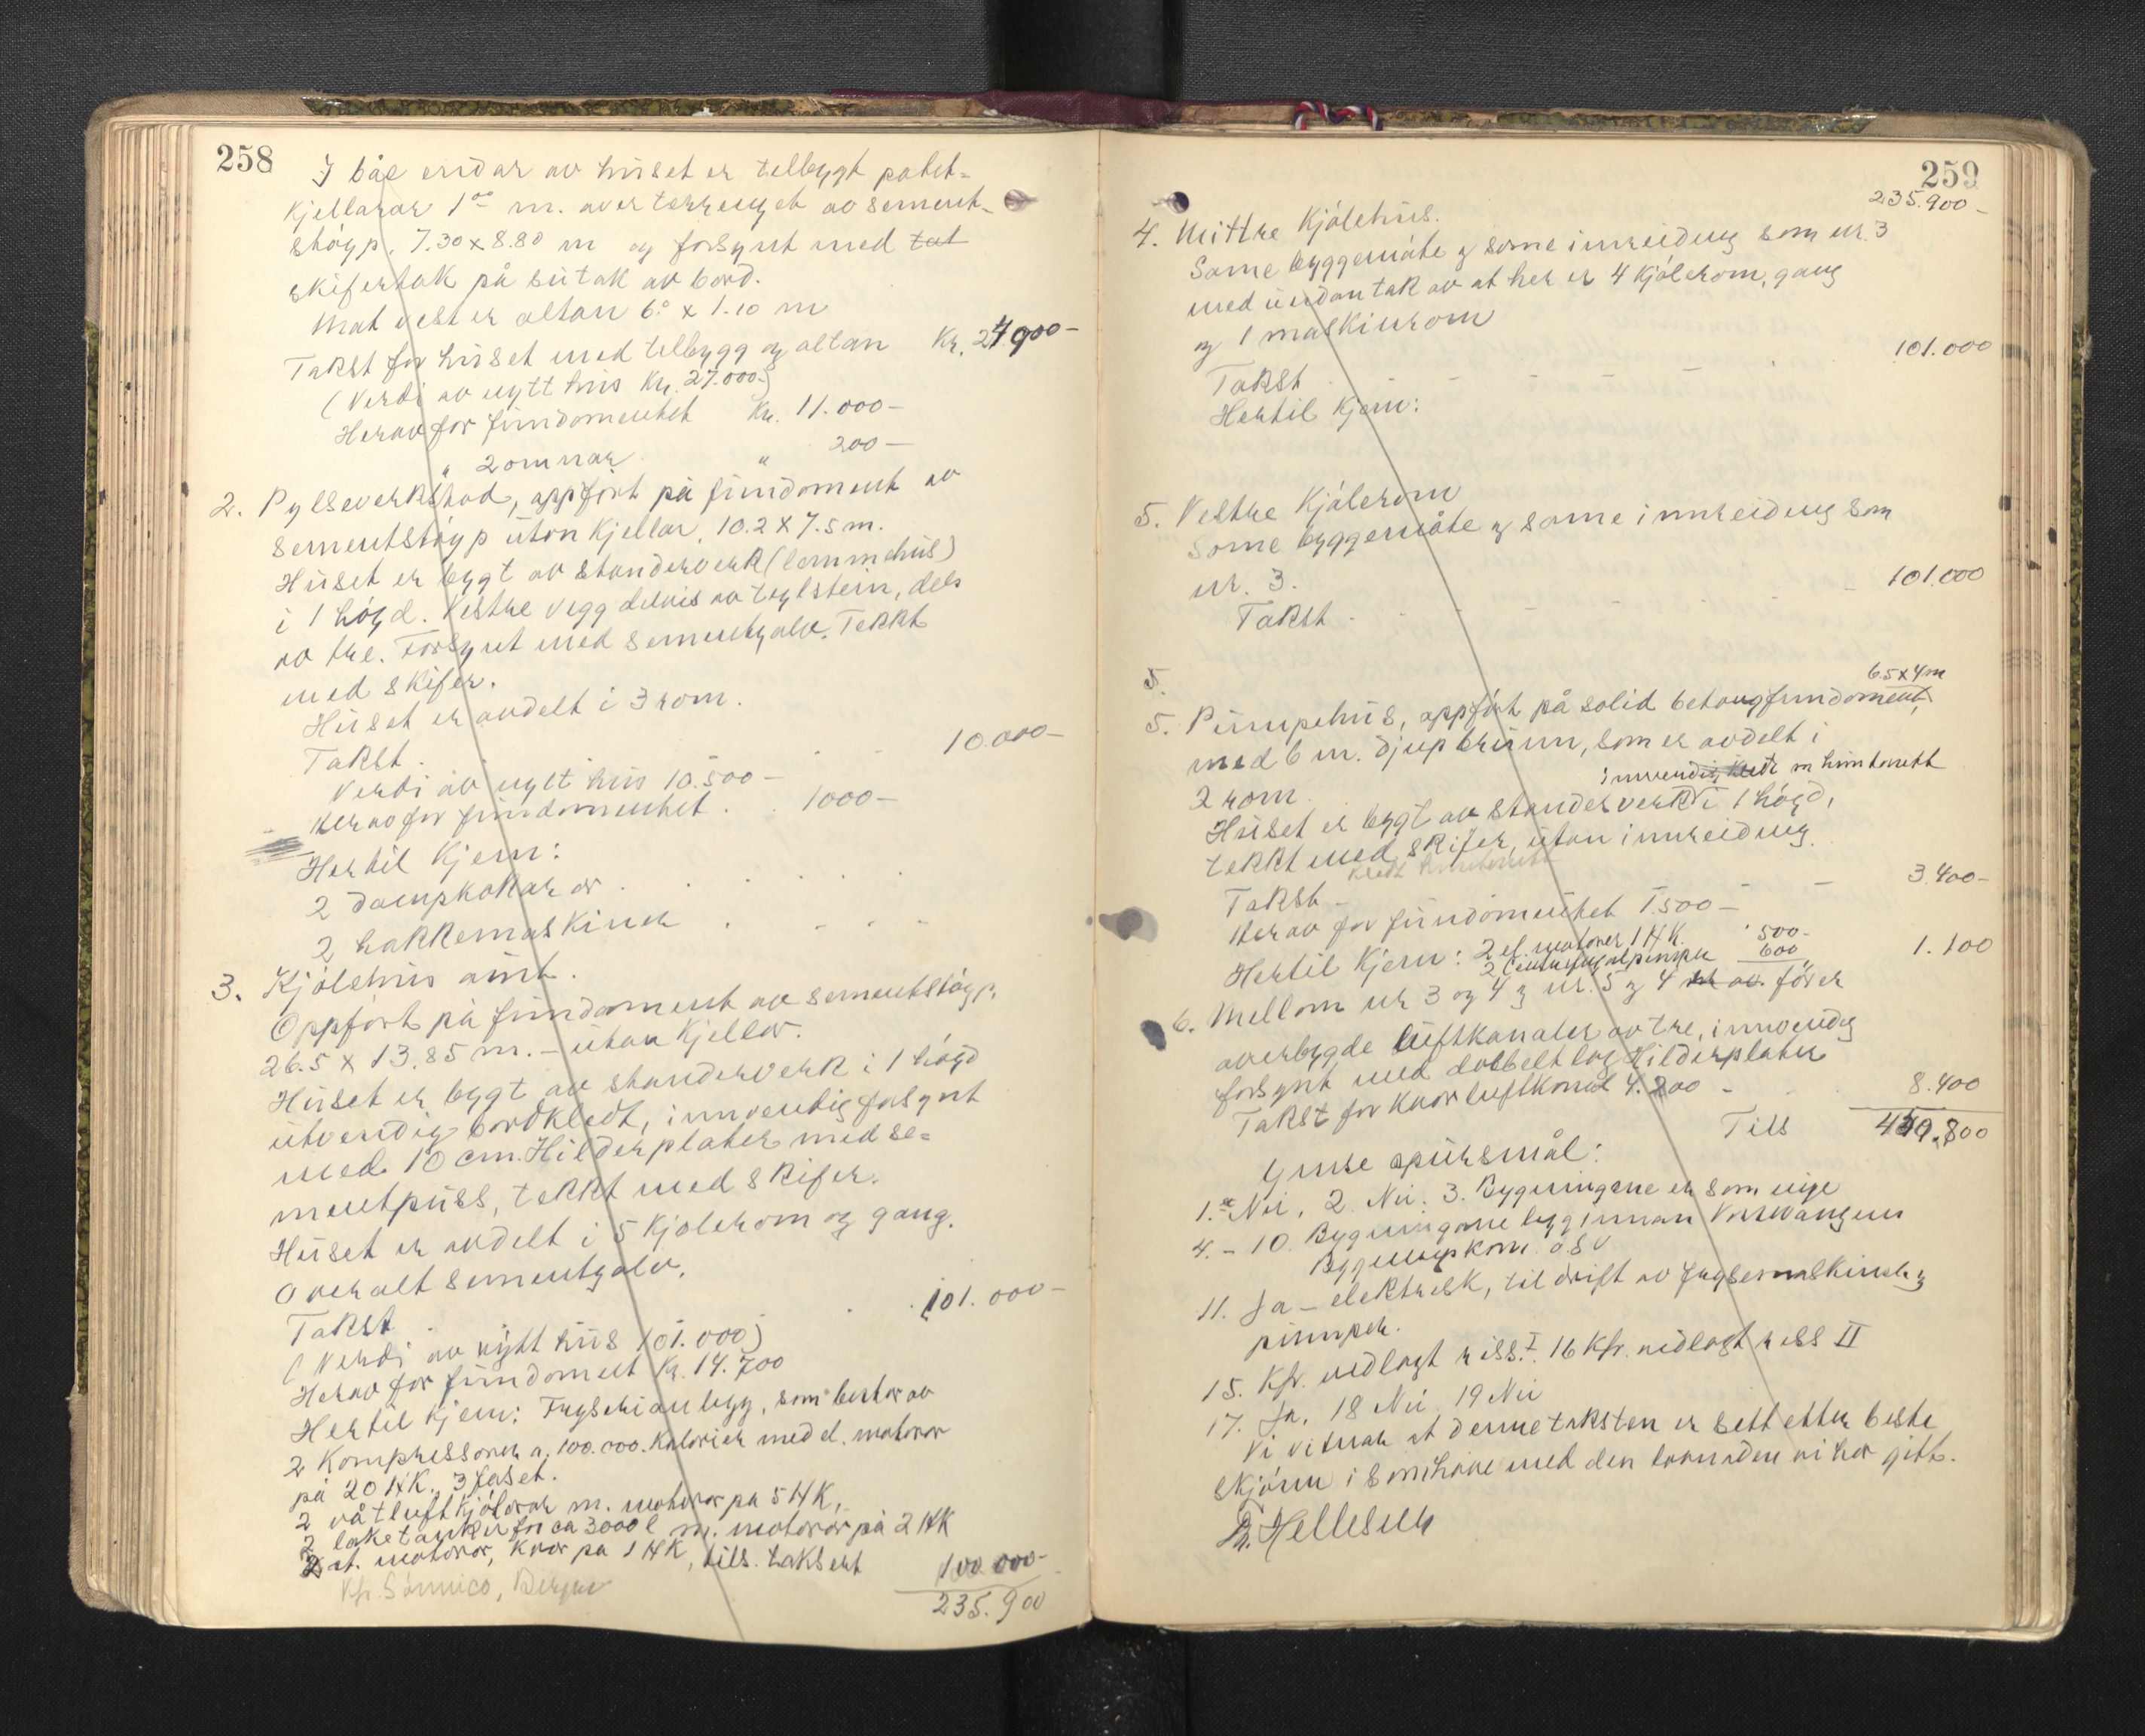 258
I båe endar av huset er tilbygt potet-
kjellarar 1 m. over terrenget av sement-
støyp, 7.30 x 8.80 m og forsynt med tat
skifertak på sutak av bord.
Mot vest er altan 6.0 x 1.10 m
Takst for huset med tilbygg og altan Kr. 24900-
(Verdi av nytt hus Kr. 27.000-)
Herav for fundamentet Kr. 11.000-
" 2 omnar " 200-
2. Pylseverkstad, oppført på fundament av
sementstøyp utan kjellar, 10.2 x 7.5 m.
Huset er bygt av standerverk (lemmehus)
i 1 høgd. Vestre vegg delvis av teglstein, dels
av tre. Forsynt med sementgolv. Tekkt
med skifer.
Huset er avdelt i 3 rom.
Takst. 10.000-
Verdi av nytt hus 10.500-
Herav for fundamentet. 1000-
Hertil kjem:
2 dampkokarar
2 hakkemaskiner
3. Kjølehus aust.
Oppført på fundament av sementstøyp,
26.5 x 13.85 m. - utan kjellar.
Huset er bygt av standerverk i 1 høgd
utvendig bordkledt, innvendig forsynt
med 10 cm. Hilderplater med se-
mentpuss, tekkt med skifer.
Huset er avdelt i 5 kjølerom og gang.
Overalt sementgolv.
Takst 101.000-
(Verdi av nytt hus 101.000)
Herav for fundament Kr. 14.700
Hertil kjem: Fryserianlegg, som bestar av
2 Kompressorer a. 100.000. kalorier med el. motorar
på 20 HK., 3 faset.
2 våtluftkjølarar m. motorar på 5 HK,
2 laketanker for ca 3000 l m. motorar på 2 HK
2 st. motorar, kvar på 1 HK, tils. taksert 100 000-
Kfr. Sønnico, Bergen 235.900
259
235.900-
4. Mittre Kjølehus.
Same byggemåte og same innreiding som nr. 3
med undantak av at her er 4 kjølerom, gang
og 1 maskinrom
Takst 101.000
Hertil kjem:
5. Vestre Kjølerom
Same byggemåte og same innreiding som
nr. 3.
Takst 101.000
5.
6.5 x 4 m
5. Pumpehus, oppført på solid betongfundament,
med 6 m. djup brunn, som er avdelt i
2 rom.
innvendig kledt m huntonitt
Huset er bygt av standerverk i 1 høgd,
tekkt med skifer, utan innreiding.
kledt huntonitt
Takst - 3.400-
Herav for fundamentet 1500-
Hertil kjem: 2 el. motorer 1 HK. 500-
2 Centrifugalpumper 600 1.100
6. Mellom nr 3 og 4 og nr. 5 og 4 nr av. fører
overbygde luftkanaler av tre, innvendig
forsynt med dobbelt lag Hilderplater
Takst for kvar luftkanal 4.200 - 8.400
Tils 450.800
Ymse spursmål:
1. Nei, 2. Nei. 3. Bygningane er som nye
4. - 10. Bygningane ligg innan Vossevangen
Bygningskom. o s v
11. Ja - elektrisk, til drift av frysemaskiner og
pumper.
15. Kfr. vedlagt riss I. 16 Kfr. vedlagt riss II
17. Ja. 18 Nei 19 Nei
Vi vitnar at denne taksten er sett etter beste
skjønn i samhøve med den lovnaden vi har gitt.
Hellesnes